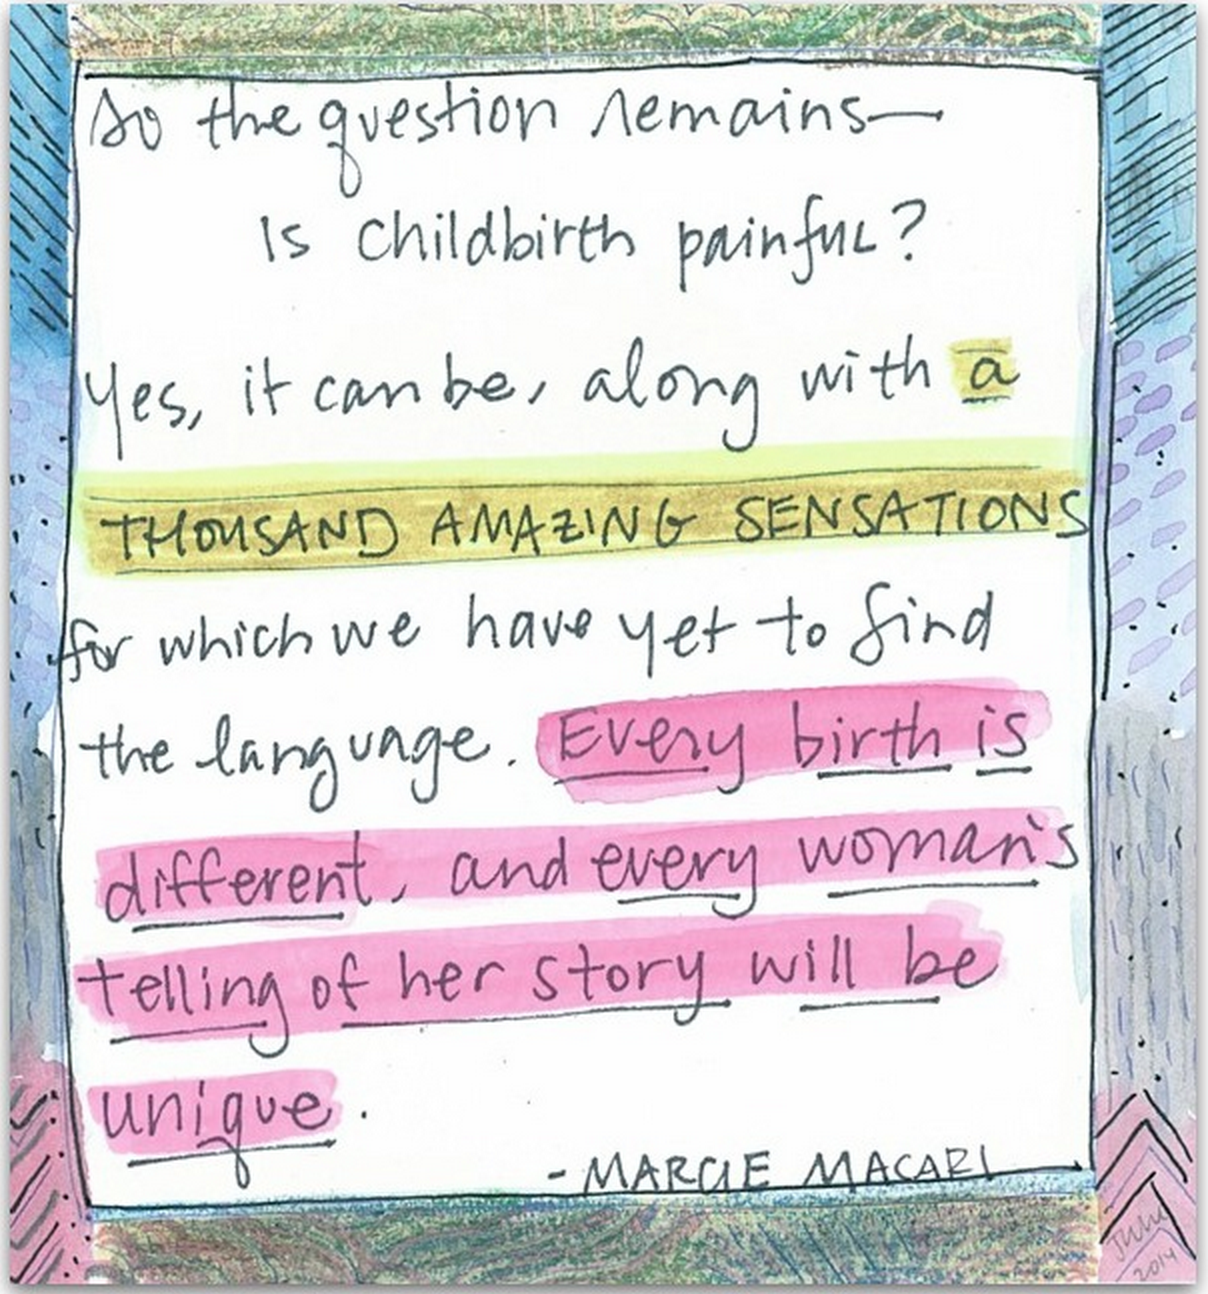 So the question remains—
Is childbirth painful?
Yes, it can be, along with a
THOUSAND AMAZING SENSATIONS
for which we have yet to find
the language. Every birth is
different, and every woman's
telling of her story will be
unique.
- MARCIE MACARI
2014